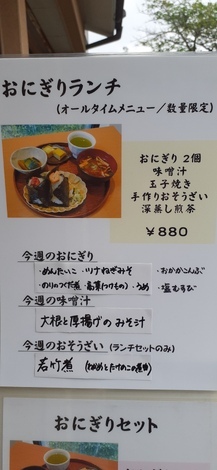 おにぎりランチ
(オールタイムメニュー／数量限定)
おにぎり 2個
味噌汁
玉子焼き
手作りおそうざい
深蒸し煎茶
￥880
今週のおにぎり
・めんたいこ ・ツナねぎみそ ・おかかこんぶ
・のりのつくだ煮 ・高菜(つけもの) ・うめ ・塩むすび
今週の味噌汁
大根と厚揚げのみそ汁
今週のおそうざい (ランチセットのみ)
若竹煮 (わかめとたけのこの煮物)
おにぎりセット